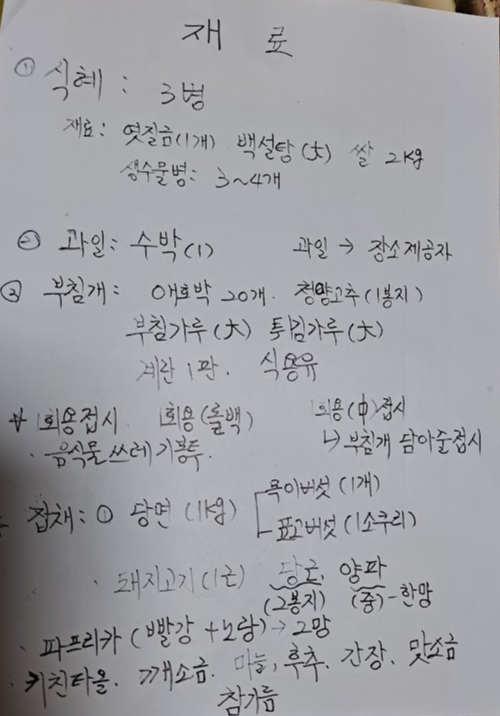 재 료
① 식혜 : 3병
재료 : 엿질금(1개) 백설탕(大) 쌀 2kg
생수물병 : 3~4개
② 과일 : 수박(1) 과일 → 장소제공자
③ 부침개 : 애호박 20개. 청양고추(1봉지)
부침가루(大) 튀김가루(大)
계란 1판. 식용유
1회용접시 1회용(롤백) 1회용(中)접시
· 음식물쓰레기봉투. ↳ 부침개 담아줄접시
잡채 : ① 당면(1kg) 목이버섯(1개)
표고버섯(1소쿠리)
· 돼지고기(1근) 당근, 양파
(2봉지) (중)-한망
· 파프리카(빨강+노랑)→2망
· 키친타올. 깨소금. 마늘, 후추. 간장. 맛소금
참기름